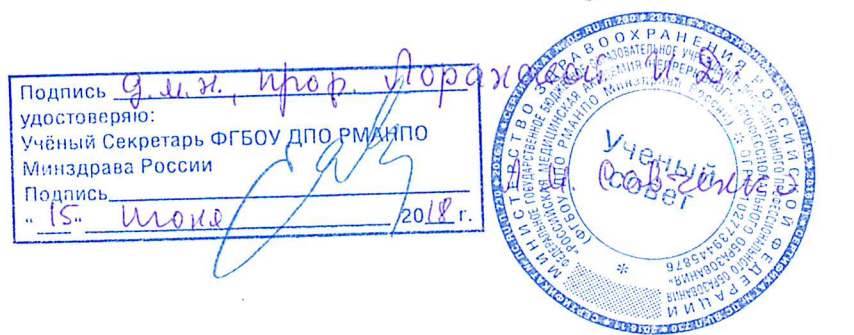 Подпись д.м.н., проф. Лоранской И. Д.
удостоверяю:
Учёный Секретарь ФГБОУ ДПО РМАНПО
Минздрава России
Подпись
"15" июня 2018 г.
Савченко
МИНИСТЕРСТВО ЗДРАВООХРАНЕНИЯ РОССИЙСКОЙ ФЕДЕРАЦИИ
ФЕДЕРАЛЬНОЕ ГОСУДАРСТВЕННОЕ БЮДЖЕТНОЕ ОБРАЗОВАТЕЛЬНОЕ УЧРЕЖДЕНИЕ ДОПОЛНИТЕЛЬНОГО ПРОФЕССИОНАЛЬНОГО ОБРАЗОВАНИЯ
"РОССИЙСКАЯ МЕДИЦИНСКАЯ АКАДЕМИЯ НЕПРЕРЫВНОГО ПРОФЕССИОНАЛЬНОГО ОБРАЗОВАНИЯ"
(ФГБОУ ДПО РМАНПО Минздрава России) * ОГРН 1027739445876
Учёный
совет